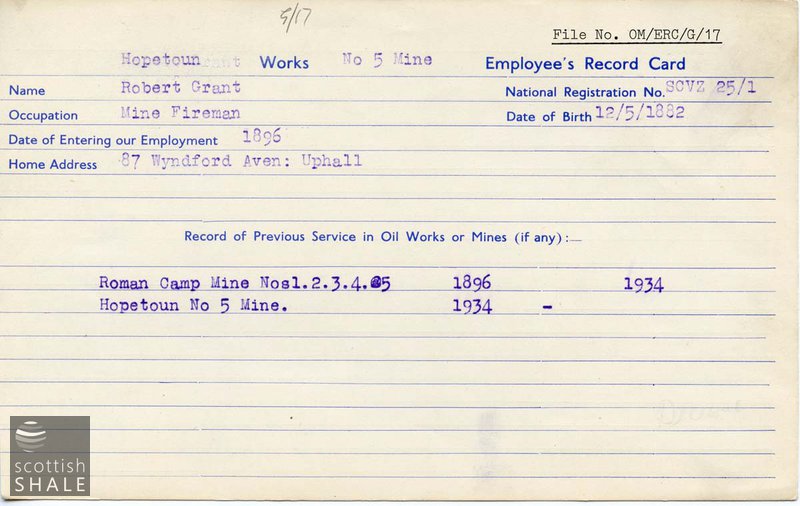 G/17
File No. OM/ERC/G/17
Hopetoun Works No 5 Mine Employee's Record Card
Name Robert Grant National Registration No. SCVZ 25/1
Occupation Mine Fireman Date of Birth 12/5/1882
Date of Entering our Employment 1896
Home Address 87 Wyndford Aven: Uphall
Record of Previous Service in Oil Works or Mines (if any):—
Roman Camp Mine Nos1.2.3.4.&5 1896 1934
Hopetoun No 5 Mine. 1934 -
scottish
SHALE